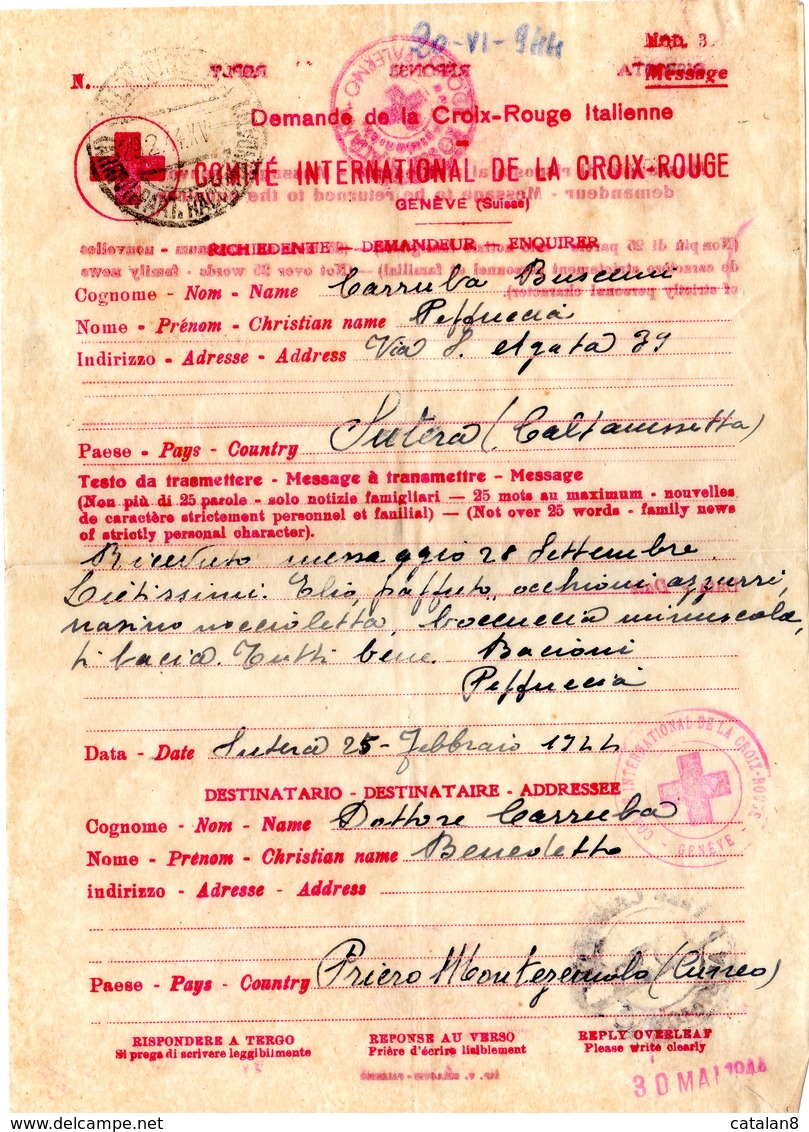 20-VI-944
MOD. 3
Message
N.
Demande de la Croix-Rouge Italienne
COMITÉ INTERNATIONAL DE LA CROIX-ROUGE
GENÈVE (Suisse)
RICHIEDENTE — DEMANDEUR — ENQUIRER
Cognome - Nom - Name Carruba
Nome - Prénom - Christian name Peppuccia
Indirizzo - Adresse - Address Via S. Agata 39
Paese - Pays - Country Sutera (Caltanissetta)
Testo da trasmettere - Message à transmettre - Message
(Non più di 25 parole - solo notizie famigliari — 25 mots au maximum - nouvelles
de caractère strictement personnel et fanilial) — (Not over 25 words - family news
of strictly personal character).
Ricevuto messaggio 28 Settembre.
Lietissimi. Elio, paffuto, occhioni azzurri,
nasino noccioletta, boccuccia minuscola,
ti bacia. Tutti bene. Bacioni
Peppuccia
Data - Date Sutera 25 - Febbraio 1944
DESTINATARIO - DESTINATAIRE - ADDRESSEE
Cognome - Nom - Name Dottore Carruba
Nome - Prénom - Christian name Benedetto
indirizzo - Adresse - Address
Paese - Pays - Country Priero Montezemolo (Cuneo)
RISPONDERE A TERGO REPONSE AU VERSO REPLY OVERLEAF
Si prega di scrivere leggibilmente Prière d'écrire lisiblement Please write clearly
30 MAI 1944
catalan8